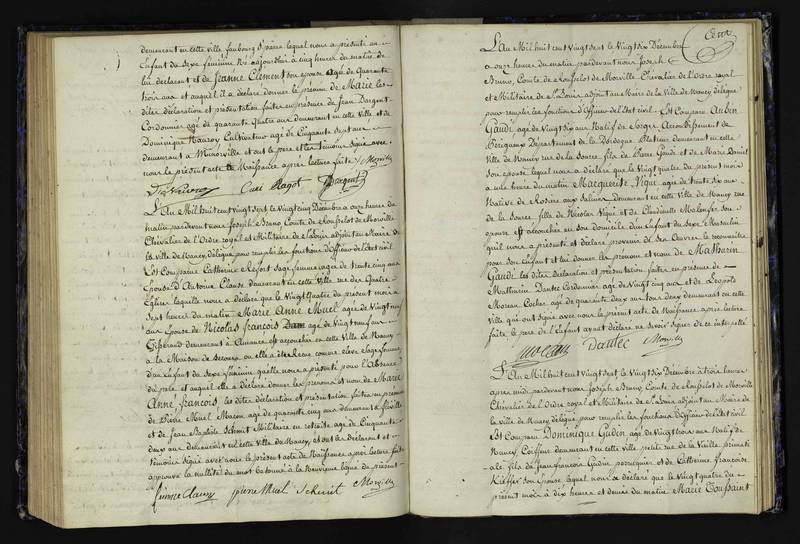 demeurant en cette ville faubourg St pierre lequel nous a présenté un
Enfant du Sexe féminin Né aujourd'hui à cinq heures du matin de
lui déclarant et de Jeanne Clement son épouse agée de Quarante
trois ans et auquel il a déclaré donner le prénom de Marie les
dites déclaration et présentation faites en présence de Jean Dargent
Cordonnier agé de quarante Quatre ans demeurant en cette Ville et de
Dominique Cultivateur agé de Cinquante Sept ans
demeurant à et ont le pere et les témoins Signé avec
nous le présent acte de Naissance après lecture faite
Dargent
L'An Mil huit cent Vingt Sept le Vingt cinq Décembre à onze heures du
matin pardevant nous Joseph Bruno Comte de Rouselot de Morville
Chevalier de l'Ordre royal et Militaire de St Louis adjoint au Maire de
la Ville de Nancy délégué pour remplir les fonctions d'Officier de l'Etat civil
Est Comparue Catherine Sage femme agée de trente cinq ans
Epouse d'Antoine Claude demeurant en cette Ville rue des Quatre
Eglises laquelle nous a déclaré que le Vingt Quatre du présent mois à
Sept heures du matin Marie Anne Muel agée de Vingt neuf
ans Epouse de Nicolas françois agé de Vingt neuf ans
demeurant à est accouchée en cette Ville de Nancy
à la Maison de Secours où elle a été Recue comme élève Sage femme
d'un Enfant du Sexe féminin qu'elle nous a présenté pour l'Absence
du pere et auquel elle a déclaré donner les prénoms et nom de Marie
Anne françois, les dites déclaration et présentation faites en présence
de Pierre Muel Maçon agé de cinquante cinq ans demeurant à
et de Jean Baptiste Schmit Militaire en retraite agé de Cinquante
deux ans demeurant en cette Ville de Nancy, et ont les déclarant et
témoins Signé avec nous le présent acte de Naissance après lecture faite
approuvé la nullité du mot à la ligne du présent
pierre Muel Schmit Morville
L'An Mil huit cent Vingt Sept le Vingt Six Décembre
à onze heures du matin pardevant nous Joseph
Bruno, Comte de Rouselot de Morville, Chevalier de l'Ordre royal
et Militaire de St Louis, adjoint au Maire de la Ville de Nancy délégué
pour remplir les fonctions d'Officier de l'Etat civil Est Comparu Aubin
Gaudi, agé de Vingt Six ans Natif de Sorges Arrondissement de
Périgueux Département de la Dordogne Platrier demeurant en cette
Ville de Nancy rue de la Source, fils de Pierre Gaudi et de Marie Daniel
Son épouse lequel nous a déclaré que le Vingt quatre du présent mois
à une heure du matin Marguerite Vigué agée de trente Six ans
Native de Rosière aux Salines Demeurant en cette Ville de Nancy rue
de la Source, fille de Nicolas Vigué et de Claudinette son
épouse est accouchée en son domicile d'un Enfant du Sexe Masculin
qu'il nous a présenté et déclaré provenir de ses Oeuvres le reconnaître
pour son Enfant et lui donner les prénom et nom de Mathurin
Gaudi les dites déclaration et présentation faites en présence de
Mathurin Dantec Cordonnier agé de Vingt cinq ans et de Léopold
Moreau Cocher agé de quarante deux ans tous deux demeurant en cette
Ville qui ont Signé avec nous le présent acte de Naissance après lecture
faite, le pere de l'Enfant ayant déclaré ne Savoir Signer de ce interpellé
Moreau Dantec Morville
L'An Mil huit cent Vingt Sept le Vingt Six Décembre à trois heures
après midi pardevant nous Joseph Bruno Comte de Rouselot de Morville
Chevalier de l'Ordre royal et Militaire de St Louis adjoint au Maire de
la Ville de Nancy délégué pour remplir les fonctions d'Officier de l'Etat civil
Est Comparu Dominique Gudin, agé de Vingt trois ans Natif de
Nancy Coiffeur demeurant en cette Ville petite rue de la Vieille primati
ale fils de Jean françois Gudin, perruquier et de Catherine françoise
Kieffer son épouse lequel nous a déclaré que le Vingt quatre du
présent mois à dix heures et demie du matin Marie Toussaint